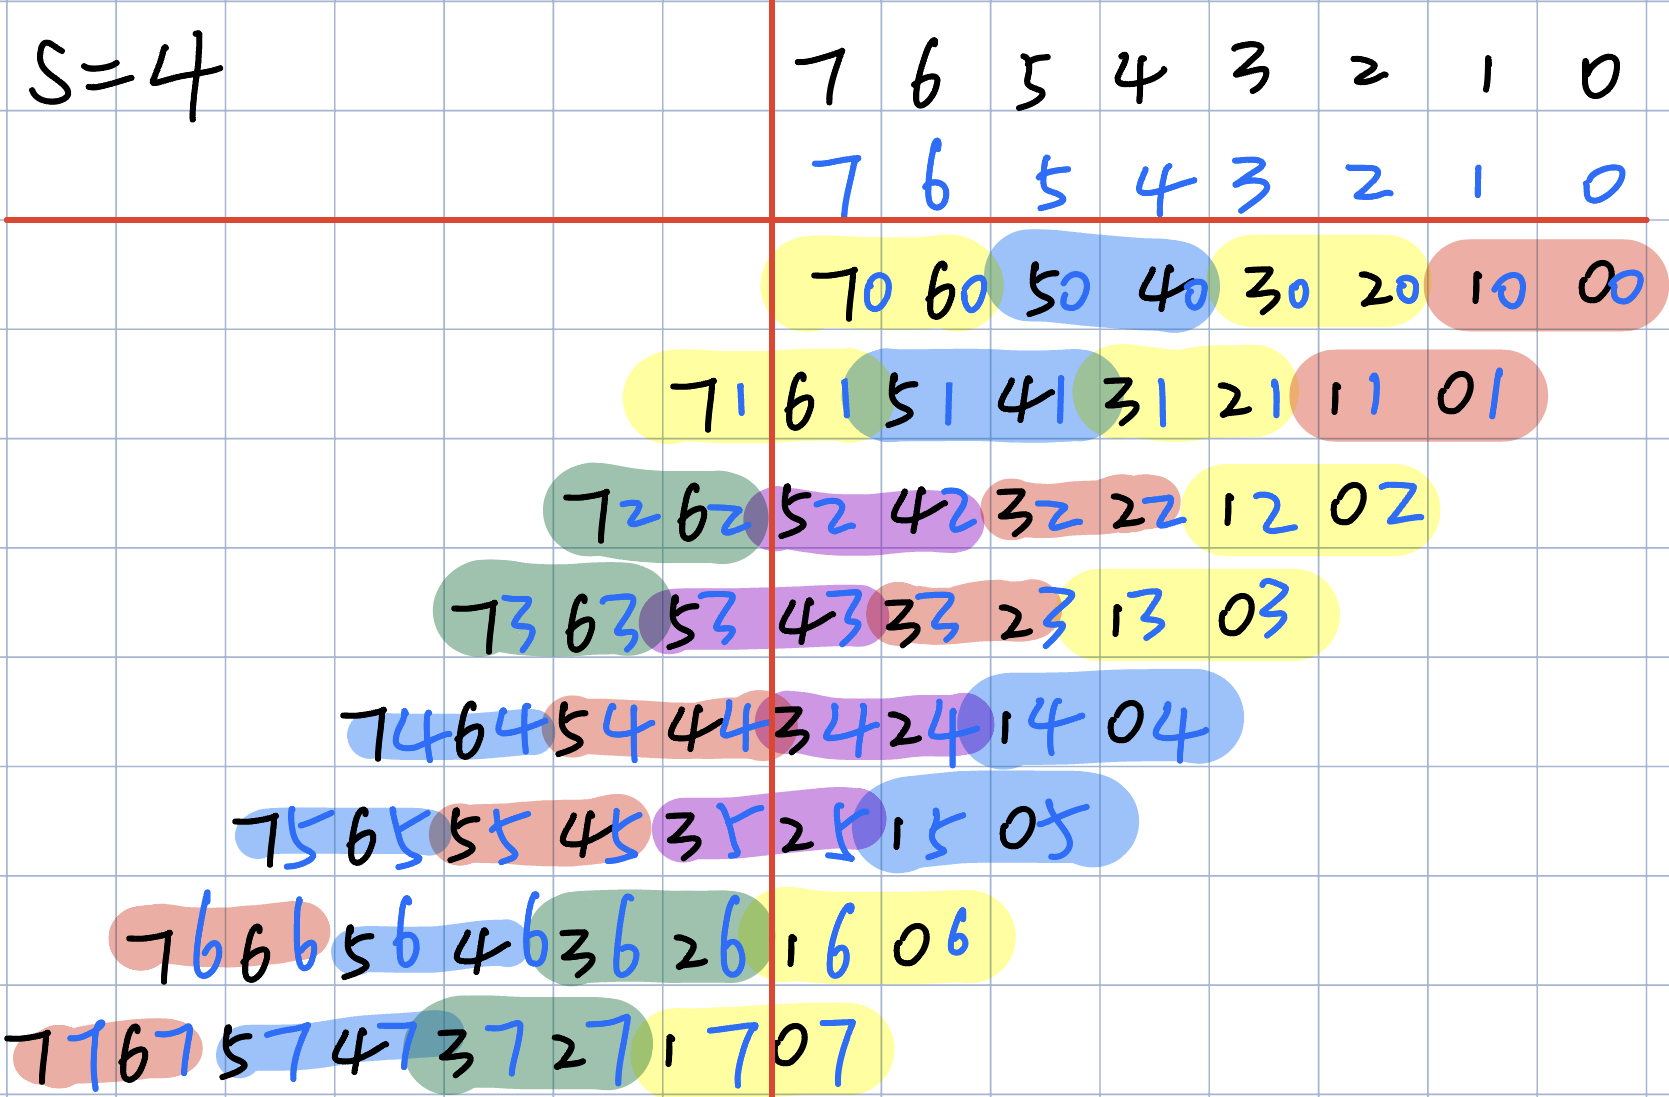 S=4 7 6 5 4 3 2 1 0
7 6 5 4 3 2 1 0
70 60 50 40 30 20 10 00
71 61 51 41 31 21 11 01
72 62 52 42 32 22 12 02
73 63 53 43 33 23 13 03
74 64 54 44 34 24 14 04
75 65 55 45 35 25 15 05
76 66 56 46 36 26 16 06
77 67 57 47 37 27 17 07